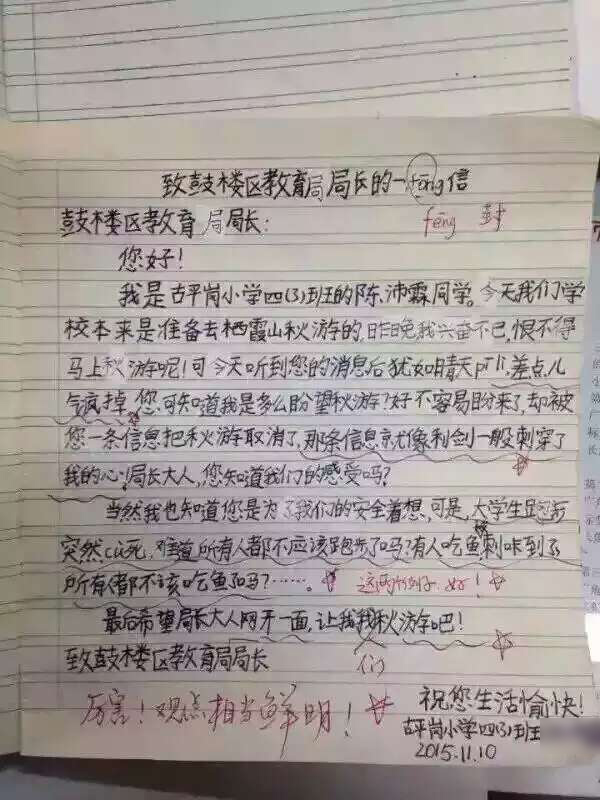 致鼓楼区教育局局长的一fēng信
fēng 封
鼓楼区教育局局长：
您好！
我是古平岗小学四(3)班的陈沛霖同学。今天我们学
校本来是准备去栖霞山秋游的，昨晚我兴奋不已，恨不得
马上秋游呢！可今天听到您的消息后犹如晴天pīlì，差点儿
气疯掉。您可知道我是多么盼望秋游？好不容易盼来了，却被
您一条信息把秋游取消了，那条信息京尤像利剑一般刺穿了
我的心！局长大人，您知道我们的感受吗？
当然我也知道您是为了我们的安全着想，可是，大学生跑步
突然cù死，难道所有人都不应该跑步了吗？有人吃鱼刺咔到了
所有人都不该吃鱼了吗？……。
这两个例子好！
最后希望局长大人网开一面，让我我秋游吧！
们
致鼓楼区教育局局长
厉害！观点相当鲜明！
祝您生活愉快！
古平岗小学四(3)班
2015.11.10